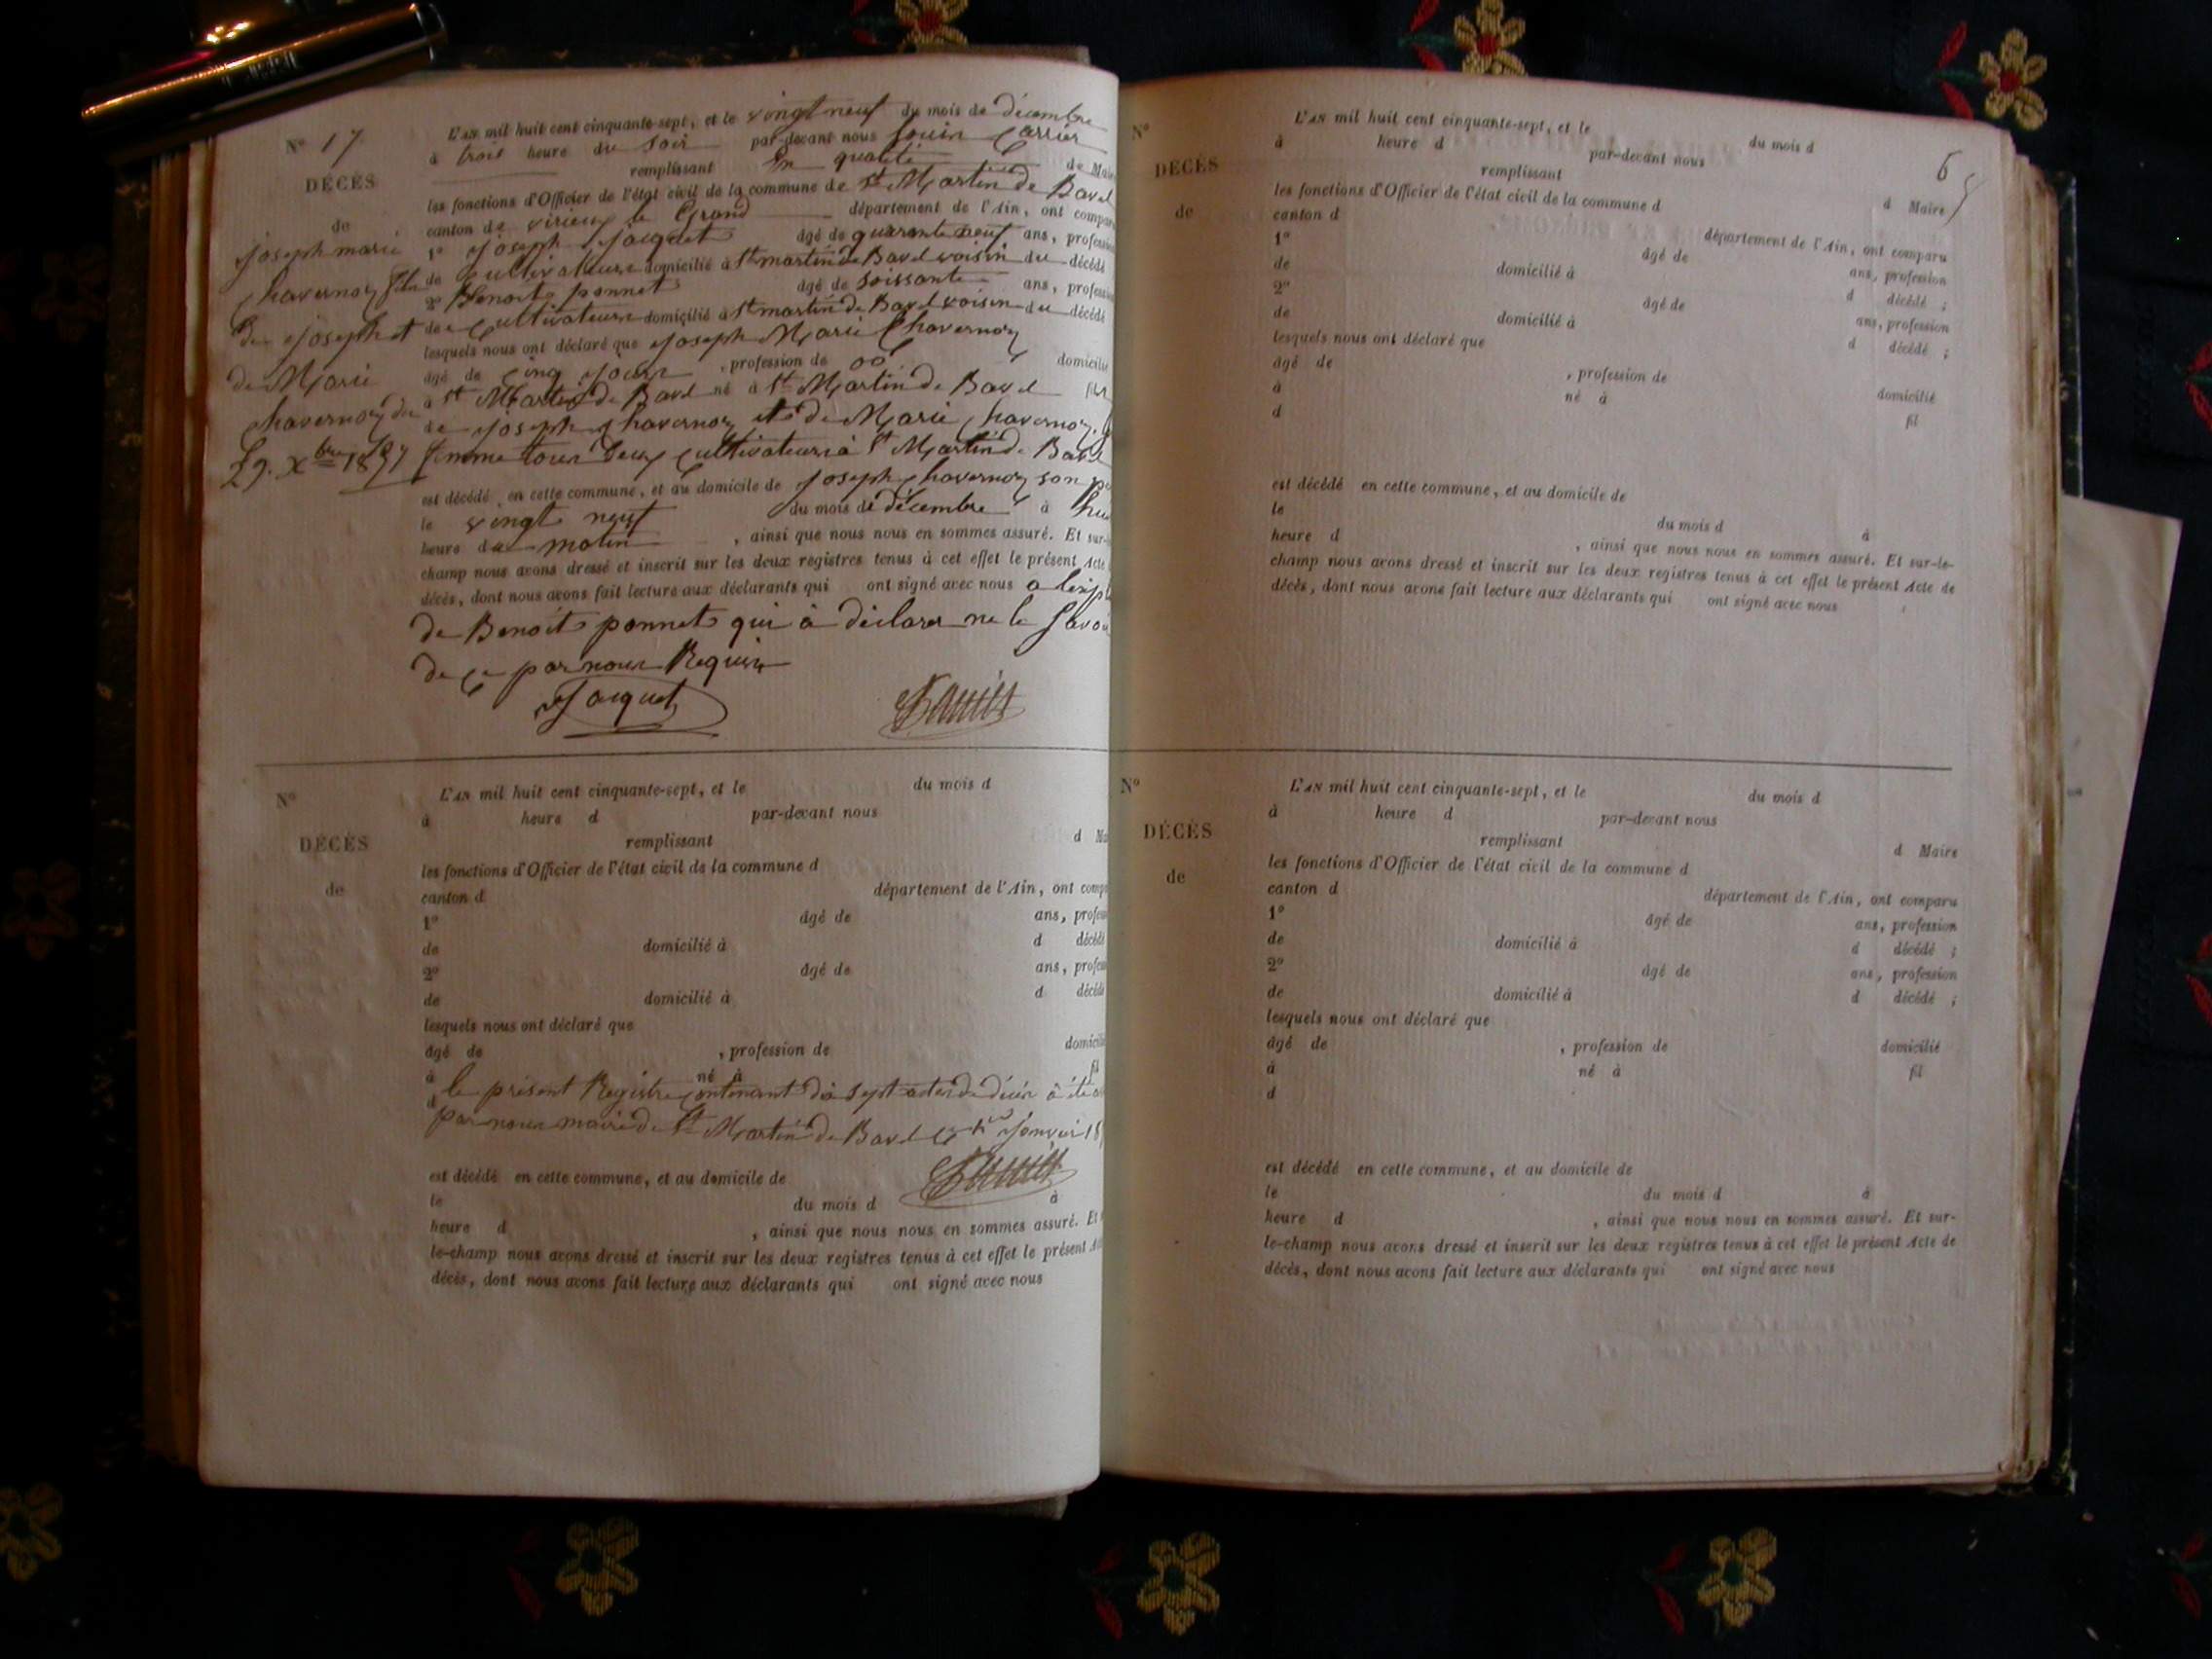 N° 17
DÉCÈS
de
joseph marie
chavernoz fils
de joseph et
de Marie
chavernoz du
29. Xbre 1857
L'AN mil huit cent cinquante-sept, et le vingt neuf du mois de décembre
à trois heure du soir par-devant nous
remplissant en qualité de Mai
les fonctions d'Officier de l'état civil de la commune de St Martin de Bavel
canton de virieux le Grand département de l'Ain, ont compar
1° joseph jacquet âgé de quarante neuf ans, profess
de Cultivateur domicilié à St martin de Bavel voisin du décédé
2° Benoit ponnet âgé de soissante ans, profess
de Cultivateur domicilié à St martin de Bavel voisin du décédé
lesquels nous ont déclaré que joseph Marie Chavernoz
âgé de cinq jours , profession de domicilié
à St Martin de Bavel né à St Martin de Bavel fils
de joseph chavernoz et de Marie chavernoz
femme tous deux Cultivateurs à St Martin de Bavel
est décédé en cette commune, et au domicile de joseph chavernoz son
le vingt neuf du mois de décembre à hui
heure du matin , ainsi que nous nous en sommes assuré. Et sur-
champ nous avons dressé et inscrit sur les deux registres tenus à cet effet le présent Acte
décès, dont nous avons fait lecture aux déclarants qui ont signé avec nous
de Benoit ponnet qui à déclarer ne le savoi
de ce par nous Requis
Jacquet
N°
DÉCÈS
de
L'AN mil huit cent cinquante-sept, et le du mois d
à heure d par-devant nous
remplissant d Ma
les fonctions d'Officier de l'état civil de la commune d
canton d département de l'Ain, ont comp
1° âgé de ans, profess
de domicilié à d décédé
2° âgé de ans, profess
de domicilié à d décédé
lesquels nous ont déclaré que
âgé de , profession de domicili
à né à fil
d
le présent Registre contenant dix sept actes de décès à été
par nous maire de St Martin de Bavel le janvier 18
est décédé en cette commune, et au domicile de
le du mois d à
heure d , ainsi que nous nous en sommes assuré. Et
le-champ nous avons dressé et inscrit sur les deux registres tenus à cet effet le présent
décès, dont nous avons fait lecture aux déclarants qui ont signé avec nous
6
N°
DÉCÈS
de
L'AN mil huit cent cinquante-sept, et le du mois d
à heure d par-devant nous
remplissant d Maire
les fonctions d'Officier de l'état civil de la commune d
canton d département de l'Ain, ont comparu
1° âgé de ans, profession
de domicilié à d décédé ;
2° âgé de ans, profession
de domicilié à d décédé ;
lesquels nous ont déclaré que
âgé de , profession de domicilié
à né à fil
d
est décédé en cette commune, et au domicile de
le du mois d à
heure d , ainsi que nous nous en sommes assuré. Et sur-le-
champ nous avons dressé et inscrit sur les deux registres tenus à cet effet le présent Acte de
décès, dont nous avons fait lecture aux déclarants qui ont signé avec nous
N°
DÉCÈS
de
L'AN mil huit cent cinquante-sept, et le du mois d
à heure d par-devant nous
remplissant d Maire
les fonctions d'Officier de l'état civil de la commune d
canton d département de l'Ain, ont comparu
1° âgé de ans, profession
de domicilié à d décédé ;
2° âgé de ans, profession
de domicilié à d décédé ;
lesquels nous ont déclaré que
âgé de , profession de domicilié
à né à fil
d
est décédé en cette commune, et au domicile de
le du mois d à
heure d , ainsi que nous nous en sommes assuré. Et sur-
le-champ nous avons dressé et inscrit sur les deux registres tenus à cet effet le présent Acte de
décès, dont nous avons fait lecture aux déclarants qui ont signé avec nous